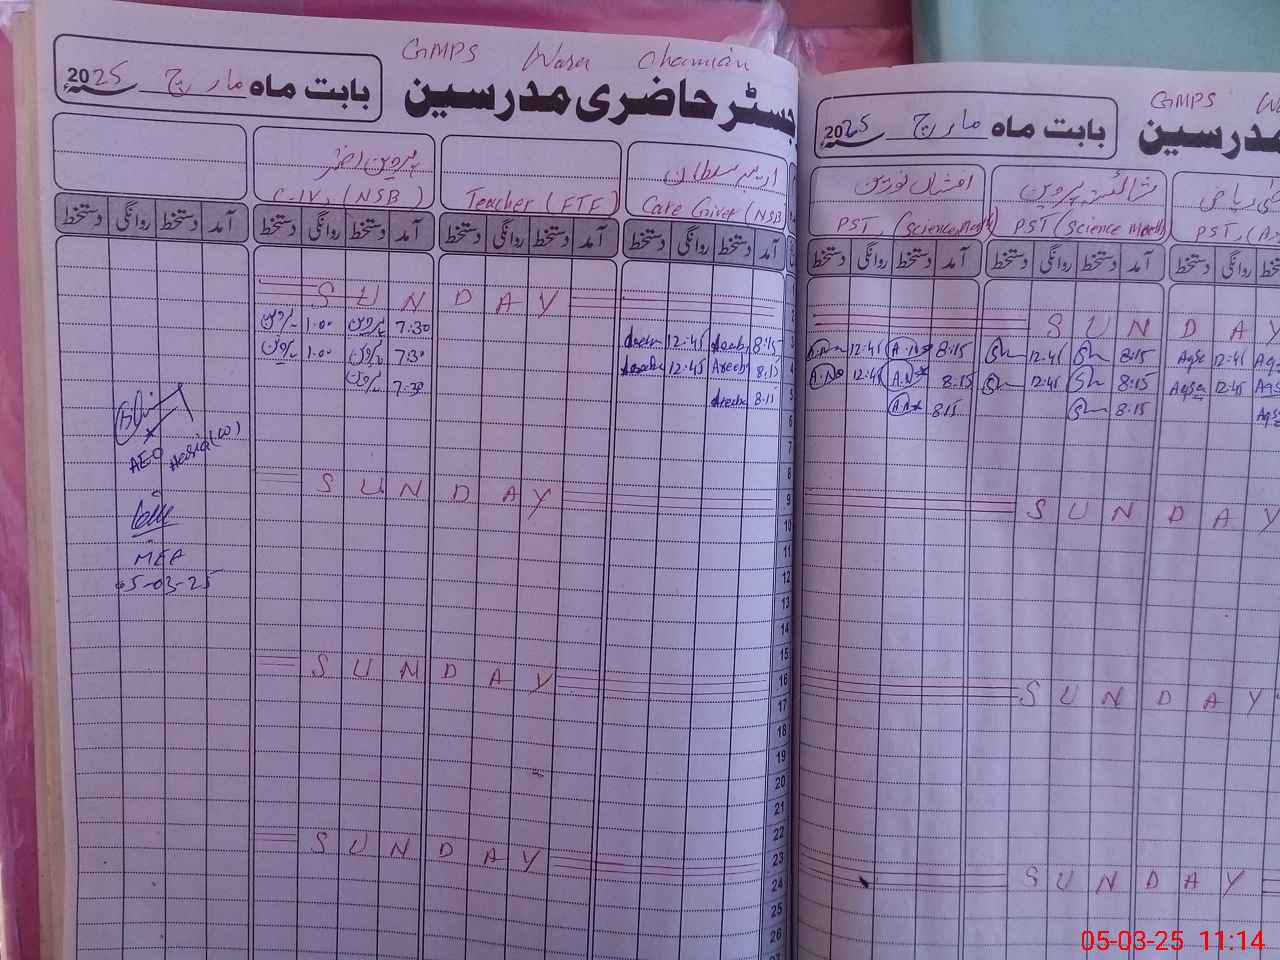 GMPS Wara Chamian
جسٹر حاضری مدرسین
بابت ماہ مارچ 2025
اریبہ سلطان
Care Giver (NSB)
Teacher (FTF)
پروین اختر
C-IV, (NSB)
آمد دستخط روانگی دستخط آمد دستخط روانگی دستخط آمد دستخط روانگی دستخط آمد دستخط روانگی دستخط
SUNDAY
8:15 Areeba 12:45 7:30 پروین 1.00 پروین
8:15 Areeba 12:45 7:30 پروین 1.00 پروین
8:15 Areeba 7:30 پروین
AEO
SUNDAY
MEA
05-03-25
SUNDAY
SUNDAY
3
4
5
6
7
8
9
10
11
12
13
14
15
16
17
18
19
20
21
22
23
24
25
26
GMPS
مدرسین
بابت ماہ مارچ 2025
ریاض
PST,
شائستہ پروین
PST (Science Math)
افشاں نورین
PST, (Science Math)
دستخط روانگی دستخط آمد دستخط روانگی دستخط آمد دستخط روانگی دستخط
SUNDAY
A.N 12:45 A.N 8:15 Sh 12:45 Sh 8:15 Aqsa 12:45
A.N 12:45 A.N 8:15 Sh 12:45 Sh 8:15 Aqsa 12:45
A.N 8:15 Sh 8:15 Aqsa
SUNDAY
SUNDAY
SUNDAY
05-03-25 11:14